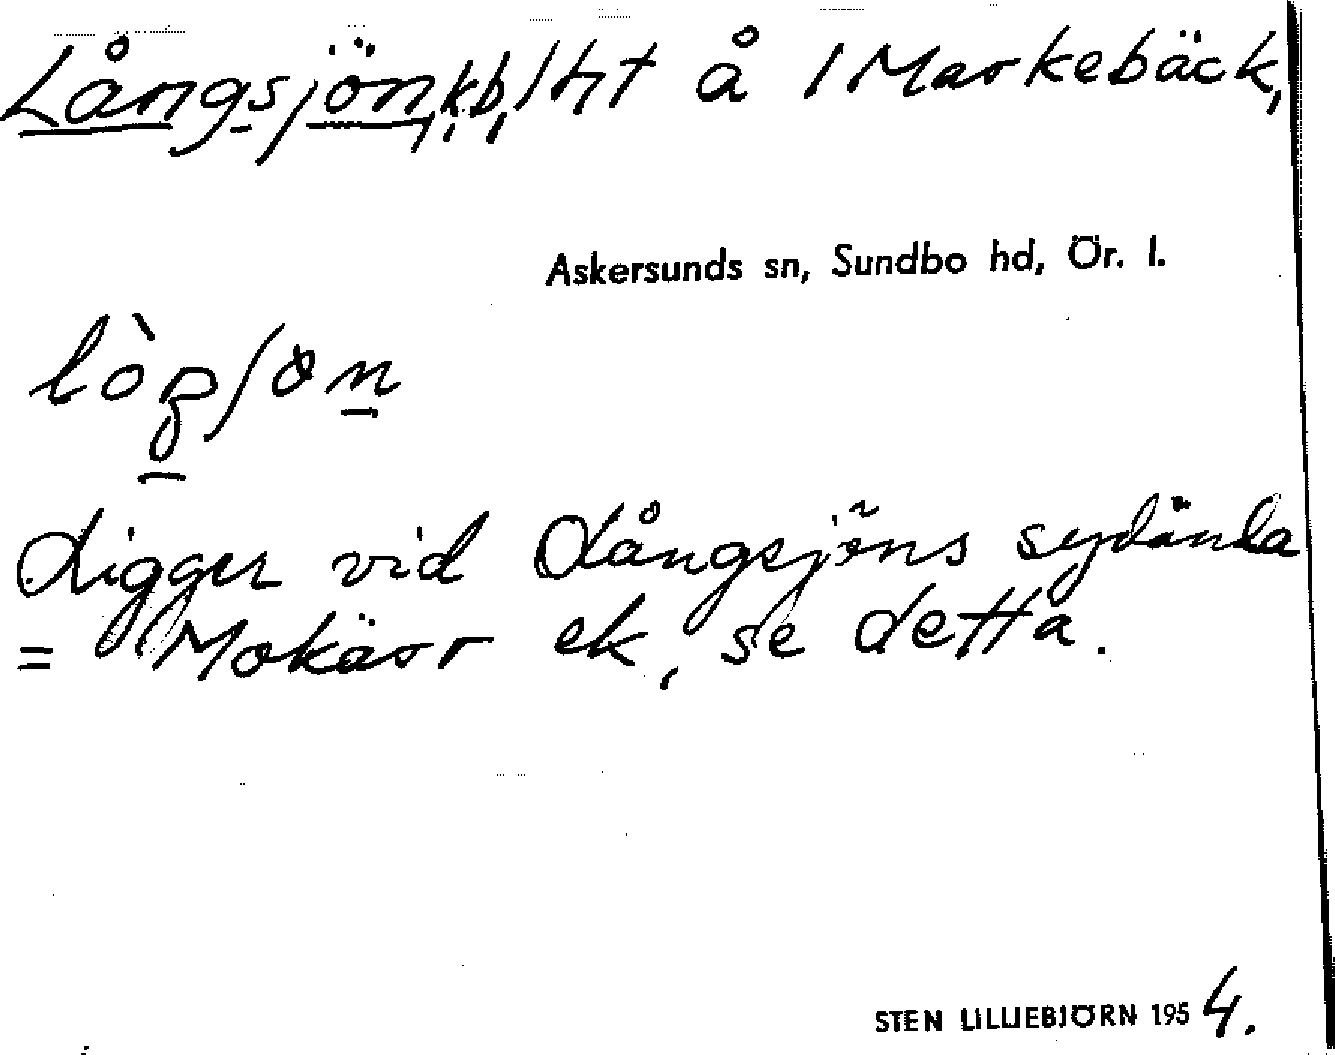 Långsjön, kb, lht å 1 Markebäck,
Askersunds sn, Sundbo hd, Ör. l.
Ligger vid Långsjöns sydända
= Mokärr ek, se detta.
STEN LILLIEBJÖRN 1954.